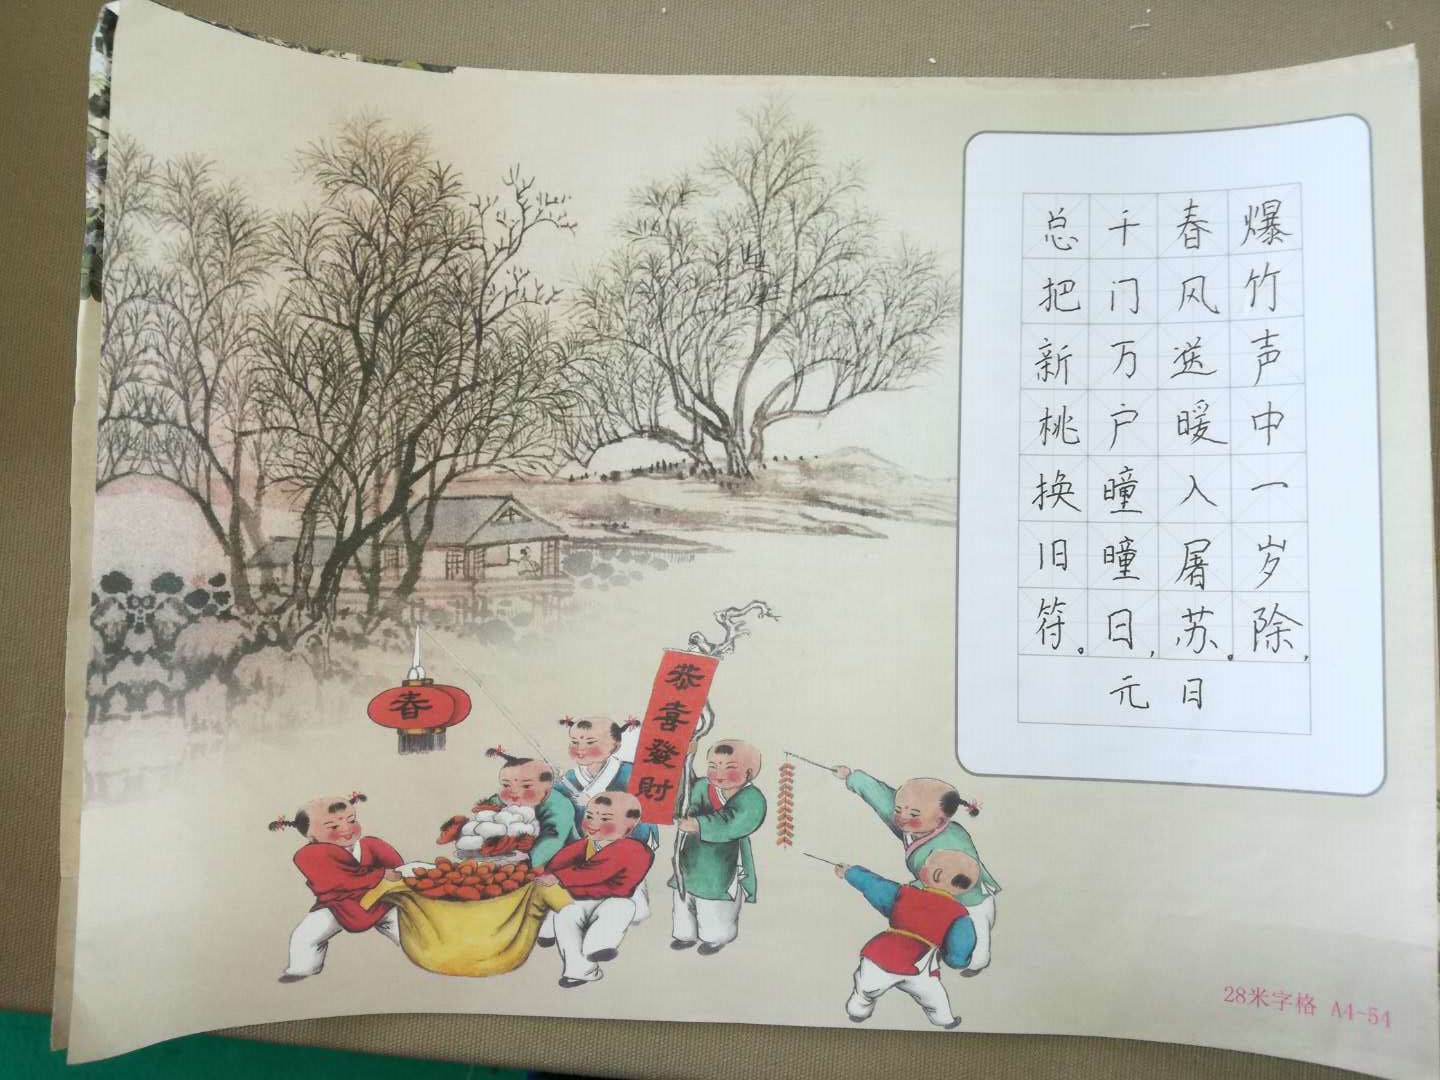 爆竹声中一岁除，
春风送暖入屠苏。
千门万户曈曈日，
总把新桃换旧符。
元日
春
恭喜發財
28米字格 A4-54